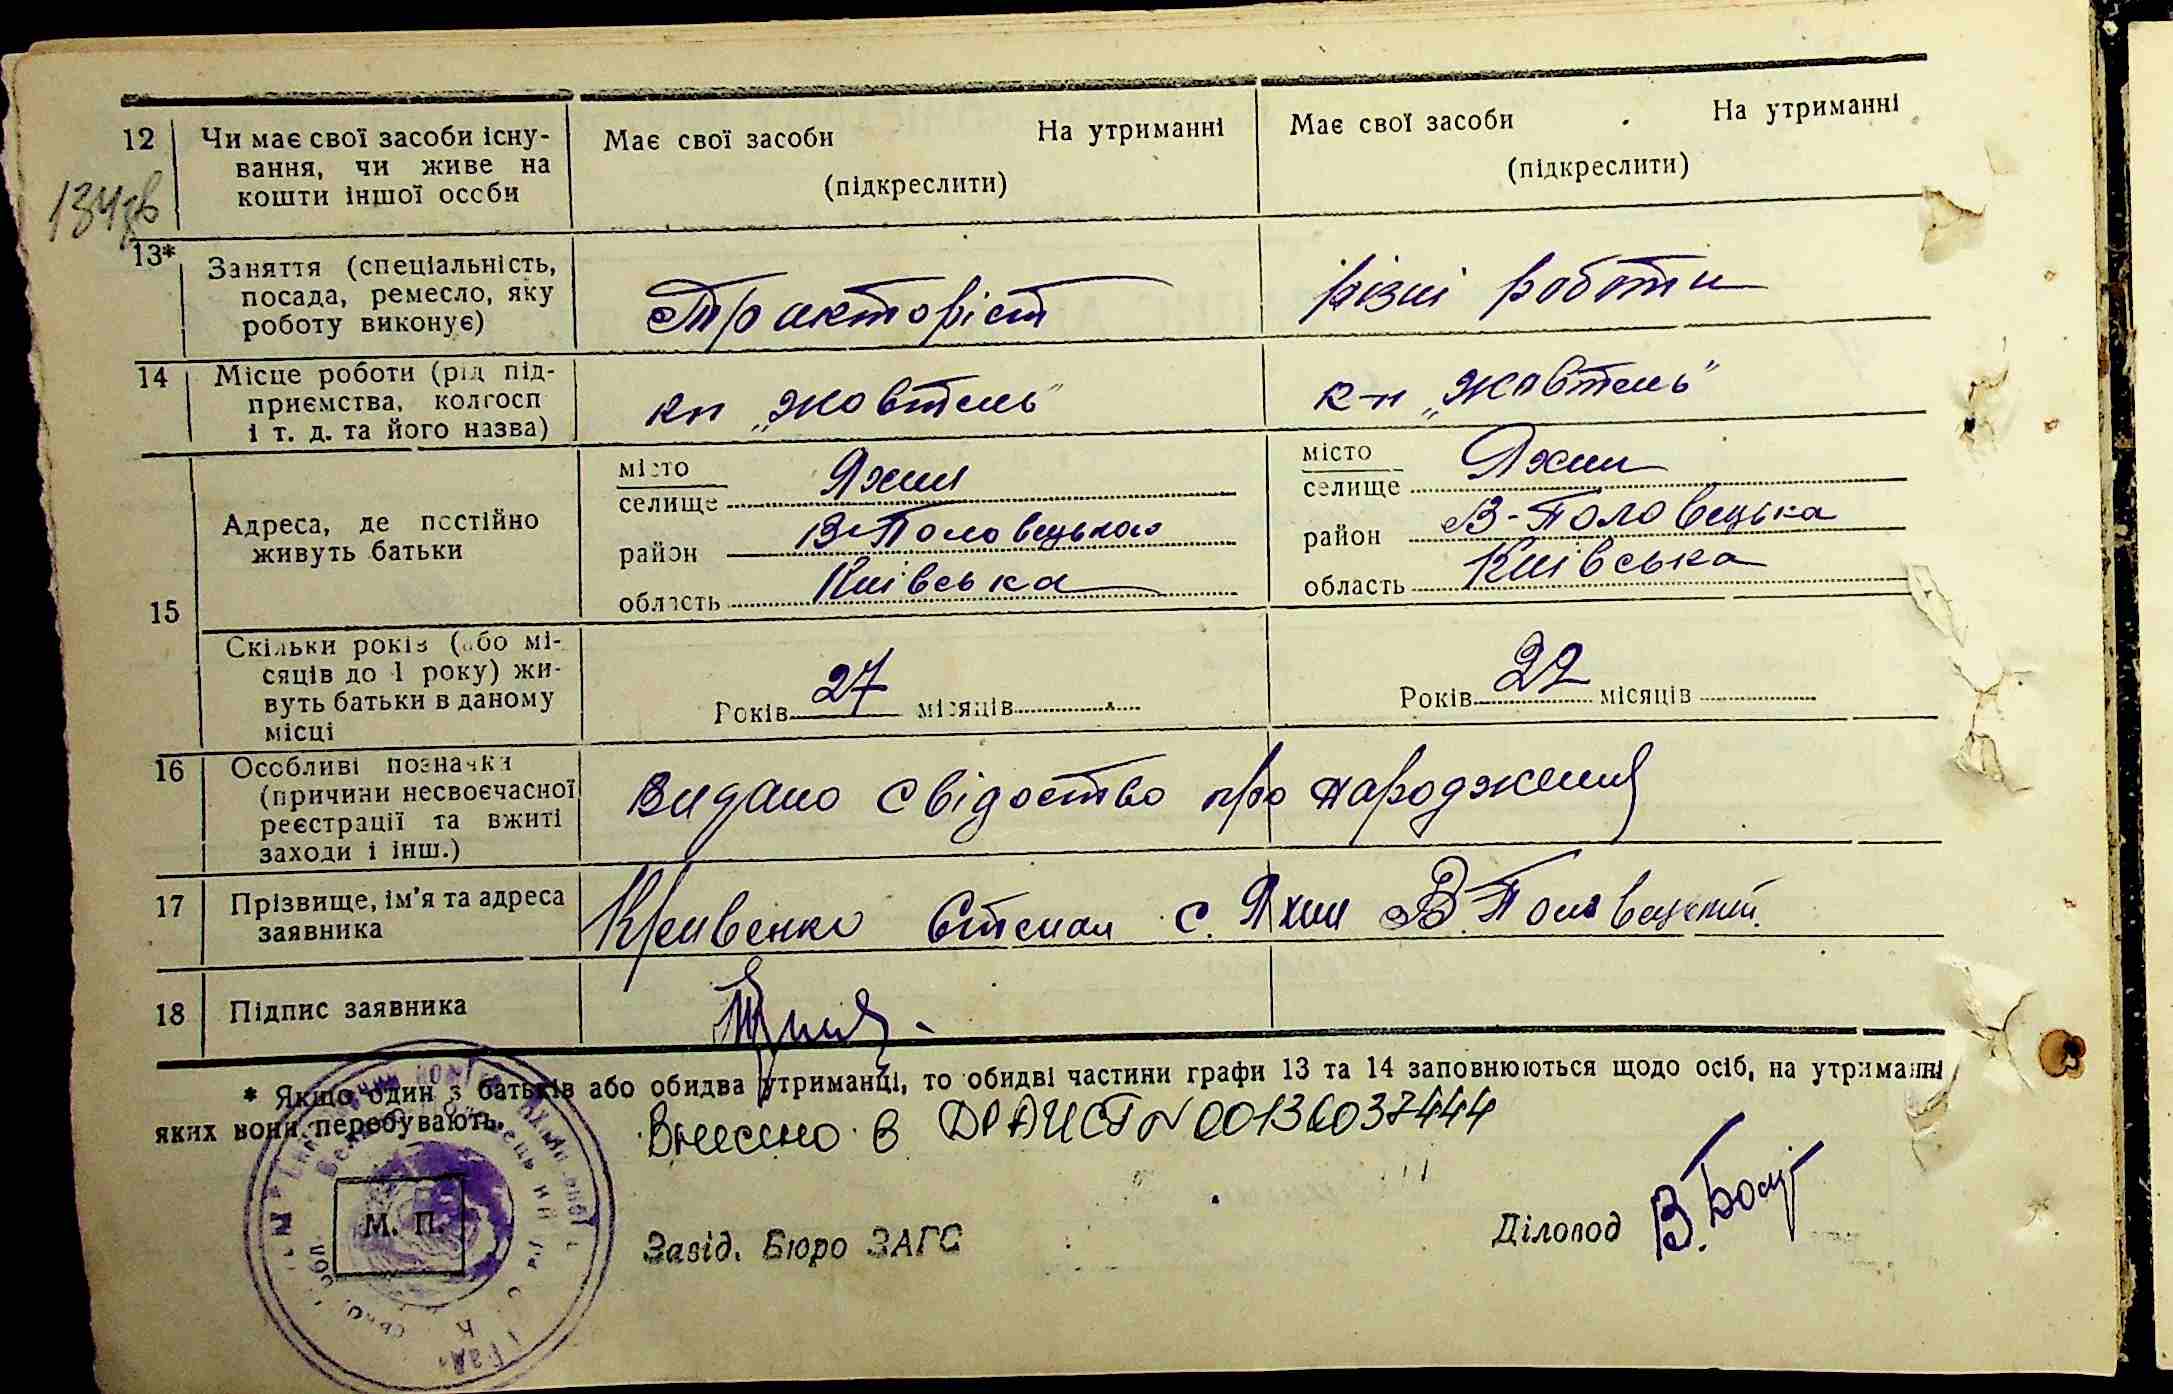 12 Чи має свої засоби існу- Має свої засоби На утриманні Має свої засоби На утриманні
вання, чи живе на (підкреслити) (підкреслити)
кошти іншої особи
134зв
13* Заняття (спеціальність, Тракторіст різні роботи
посада, ремесло, яку
роботу виконує)
14 Місце роботи (рід під- кп „Жовтень" к-п „Жовтень"
приємства, колгосп
і т. д. та його назва)
15 Адреса, де постійно
живуть батьки
місто Яхни місто Яхни
селище селище
район В-Половецького район В-Половецька
область Київська область Київська
Скільки років (або мі-
сяців до 1 року) жи-
вуть батьки в даному
місці
Років 27 місяців Років 22 місяців
16 Особливі позначки видано свідоство про народження
(причини несвоєчасної
реєстрації та вжиті
заходи і інш.)
17 Прізвище, ім'я та адреса Кривенко Степан с. Яхни В.Половецький.
заявника
18 Підпис заявника
* Якщо один з батьків або обидва утриманці, то обидві частини графи 13 та 14 заповнюються щодо осіб, на утриманні
яких вони перебувають.
Внесено в ДРАЦСГ N 00136037444
М. П.
Завід. Бюро ЗАГС Діловод